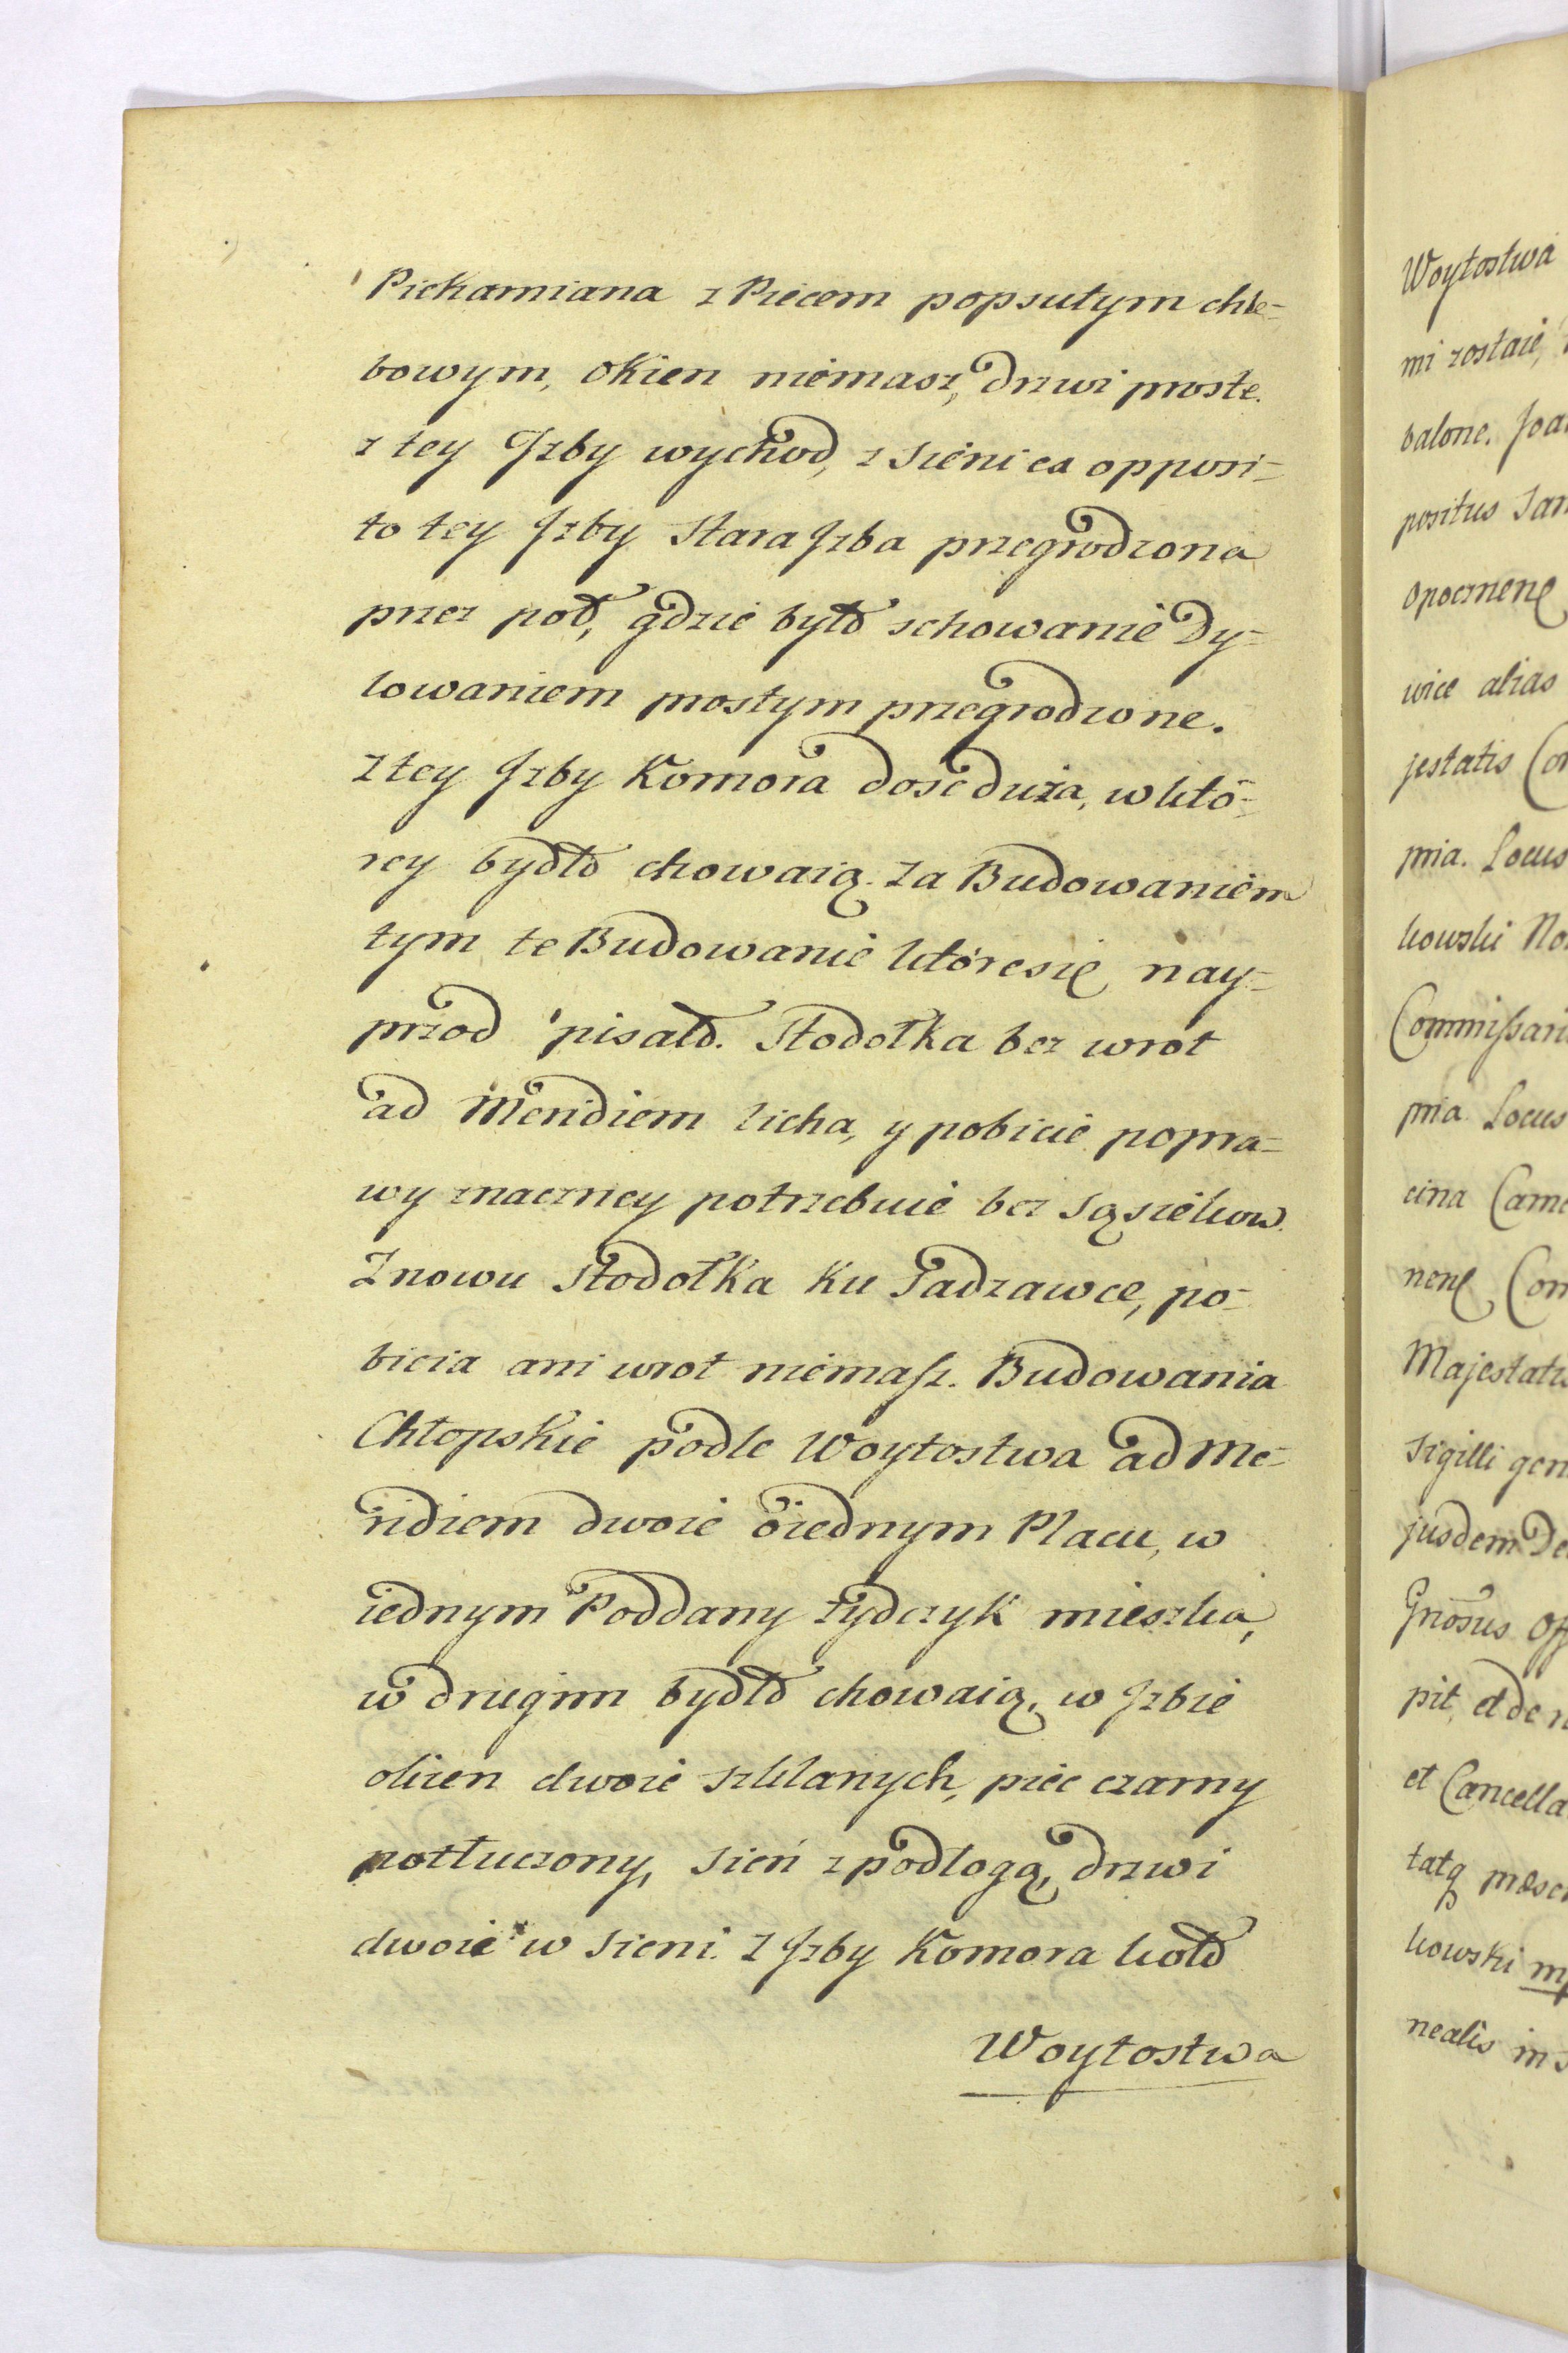 Piekarniana z Piecem popsutym chle=
bowym, Okien niemasz, drzwi proste.
z tey Jzby wychod, z Sieni ex opposi=
to tey Jzby Stara Jzba przegrodzona
przez poł, gdzie było schowanie Dy=
lowaniem prostym przegrodzone.
Z tey Jzby Komora dosc duża, w któ=
rey bydło chowaią. Za Budowaniem
tym te Budowanie które się nay=
przod pisało. Stodołka bez wrot
ad Meridiem licha, y pobicie popra=
wy znaczney potrzebuie bez Sąsiekow.
Znowu Stodołka Ku Sadzawce, po=
bicia ani wrot niemasz. Budowania
Chłopskie podle Woytostwa ad Me=
ridiem dwoie o iednym Placu, w
iednym Poddany Żydczyk mieszka,
w drugim bydło chowaią, w Jzbie
okien dwoie szklanych, piec czarny
potłuczony, Sień z podłogą, drzwi
dwoie w Sieni. Z Jzby Komora koło
Woytostwa
Woytostwa
mi zostaie,
balone. Joa
positus San
Opocznen
wice alias
jestatis Co
pria. Locus
kowski No
Commissari
pria Locus
cina Came
nen Com
Majestatis
Sigilli gen
jusdem De
Gnosus Off
pit, et de r
et Cancella
tatq præsen
kowski mp
nealis in